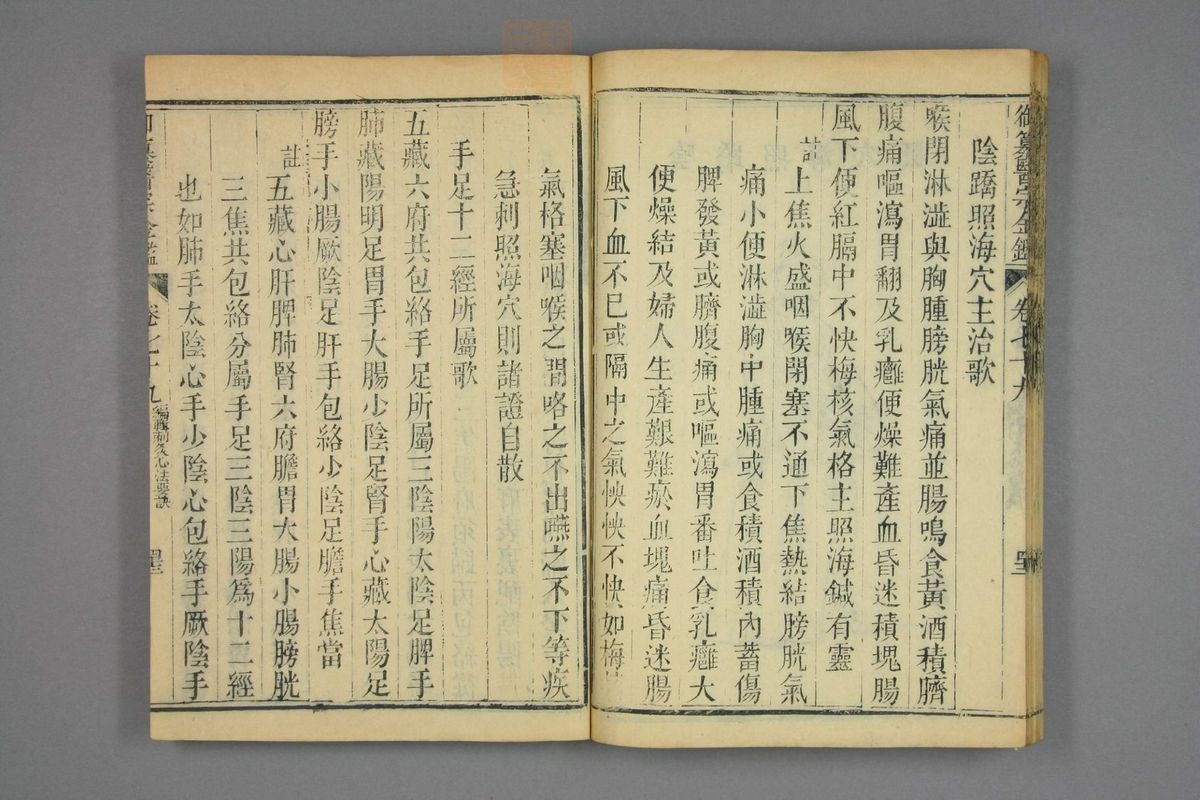 御纂醫宗金鑑 卷七十九
陰蹻照海穴主治歌
喉閉淋澁與胸腫膀胱氣痛並腸鳴食黃酒積臍
腹痛嘔瀉胃翻及乳癰便燥難產血昏迷積塊腸
風下便紅膈中不快梅核氣格主照海鍼有靈
註上焦火盛咽喉閉塞不通下焦熱結膀胱氣
痛小便淋澁胸中腫痛或食積酒積內蓄傷
脾發黃或臍腹痛或嘔瀉胃番吐食乳癰大
便燥結及婦人生產艱難瘀血塊痛昏迷腸
風下血不已或隔中之氣怏怏不快如梅
氣格塞咽喉之間咯之不出嚥之不下等疾
急刺照海穴則諸證自散
手足十二經所屬歌
五藏六府共包絡手足所屬三陰陽太陰足脾手
肺藏陽明足胃手大腸少陰足腎手心藏太陽足
膀手小腸厥陰足肝手包絡少陰足膽手焦當
註五藏心肝脾肺腎六府膽胃大腸小腸膀胱
三焦共包絡分屬手足三陰三陽爲十二經
也如肺手太陰心手少陰心包絡手厥陰手
纂醫宗金鑑 卷七十九 編輯刺灸心法要訣